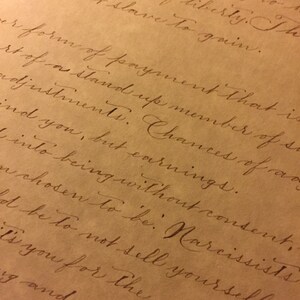 liberty. Th
slave to gain.
er form of payment that is
rt of a stand up member of so
adjustments. Chances of a
ind you, but earnings.
d into being without consent,
n chosen to 'be'. Narcissists
ld be to not sell yourself
it's you for the
ng and